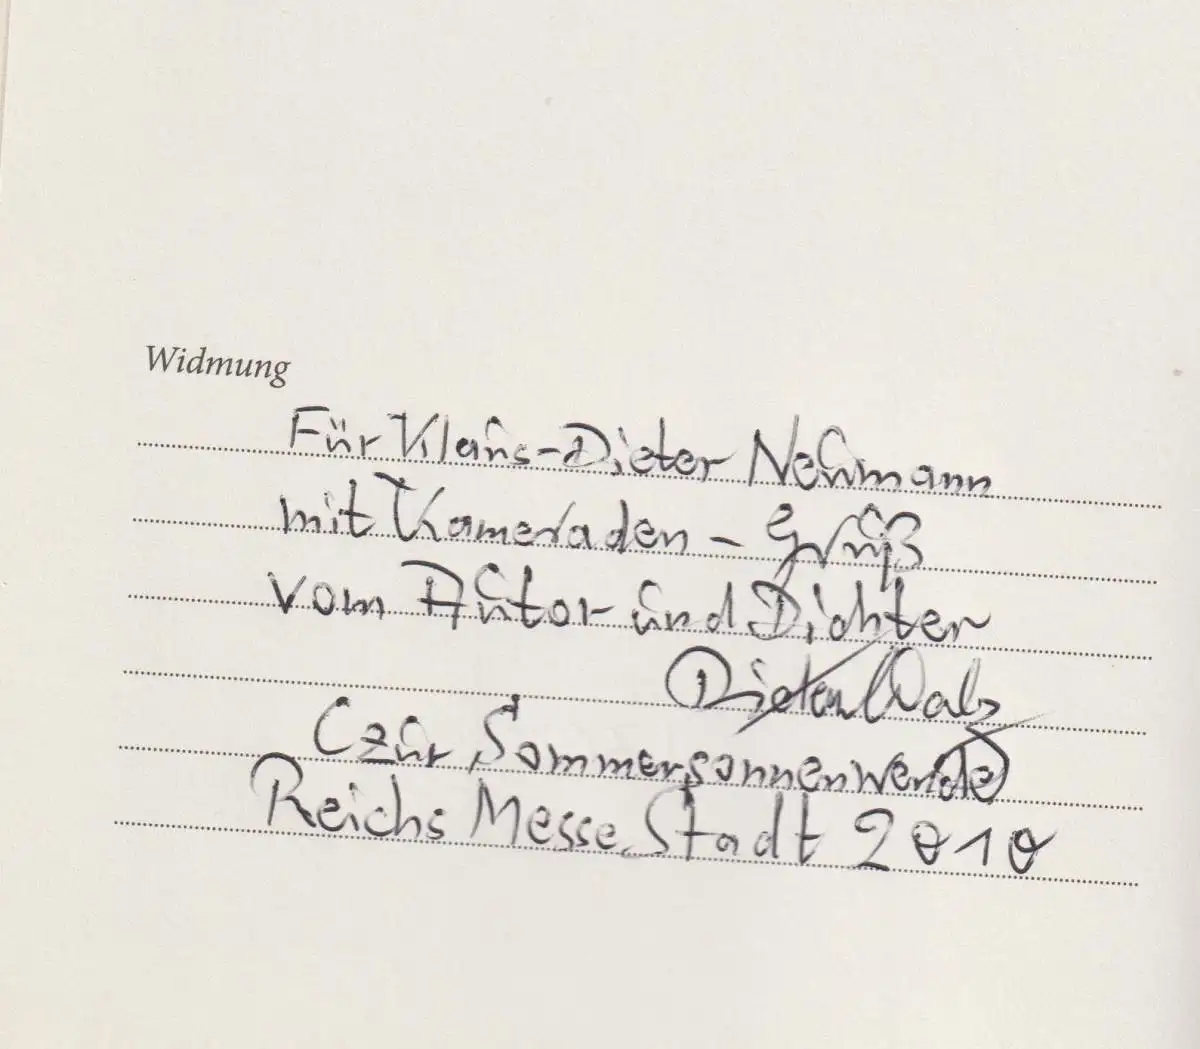 Widmung
Für Klaus-Dieter Neumann
mit Kameraden - Gruß
vom Autor und Dichter
Dieter Walz
(zur Sommersonnenwende)
Reichs Messe Stadt 2010